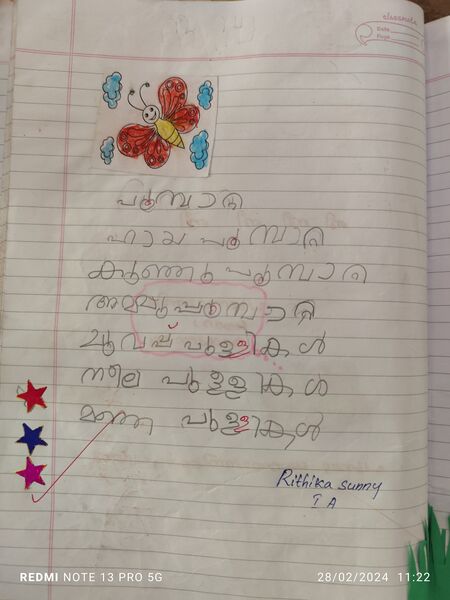 classmate
Date
Page
പൂമ്പാറ്റ
ഹായ പൂമ്പാറ്റ
കുഞ്ഞു പൂമ്പാറ്റ
അമ്മു പൂമ്പാറ്റ
ചുവപ്പ് പുള്ളികൾ
നീല പുള്ളികൾ
മഞ്ഞ പുള്ളികൾ
Rithika sunny
I A
REDMI NOTE 13 PRO 5G
28/02/2024 11:22